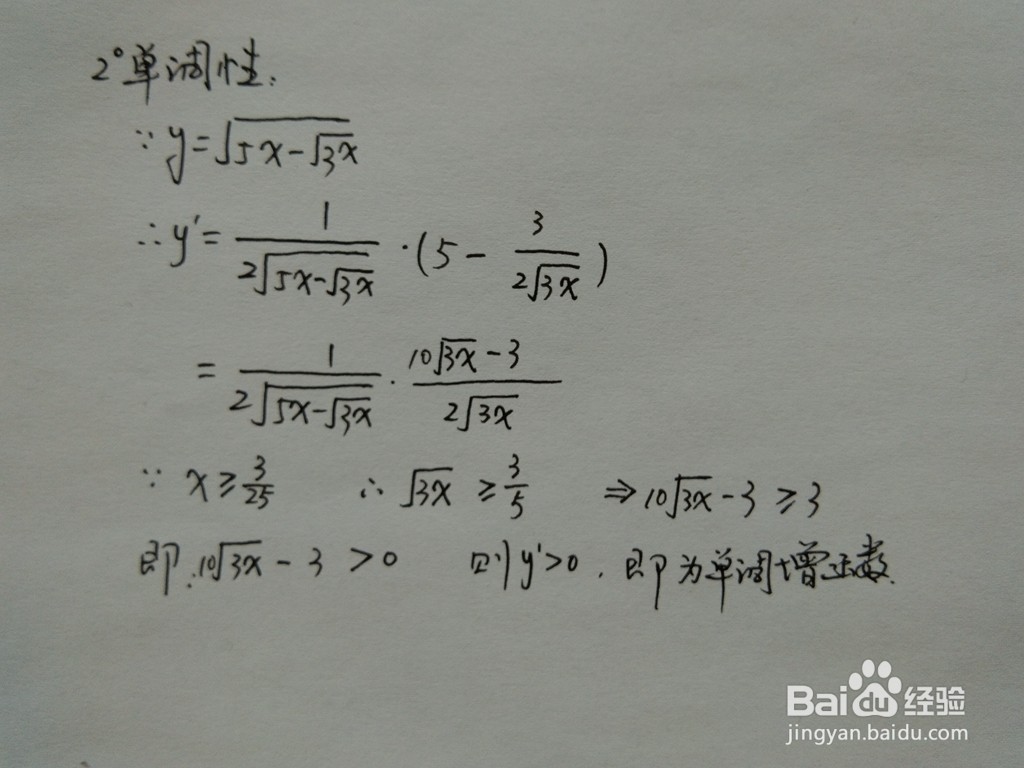 2°单调性:
∵ y=√(5x-√(3x))
∴ y'= 1/(2√(5x-√(3x))) ·(5 - 3/(2√(3x)))
= 1/(2√(5x-√(3x))) · (10√(3x) - 3)/(2√(3x))
∵ x≥3/25 ∴ √(3x) ≥ 3/5 ⇒ 10√(3x) - 3 ≥ 3
即:10√(3x) - 3 > 0 则y'>0. 即为单调增函数.
Bai du 经验
jingyan.baidu.com